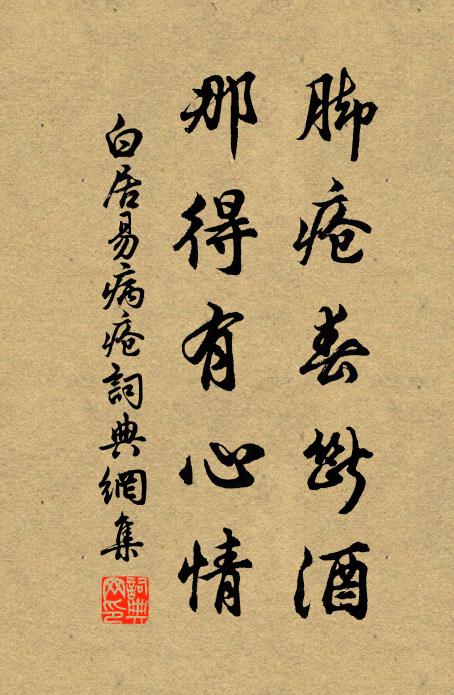 脚疮春断酒
那得有心情
白居易病疮詞典網集
詞典網印